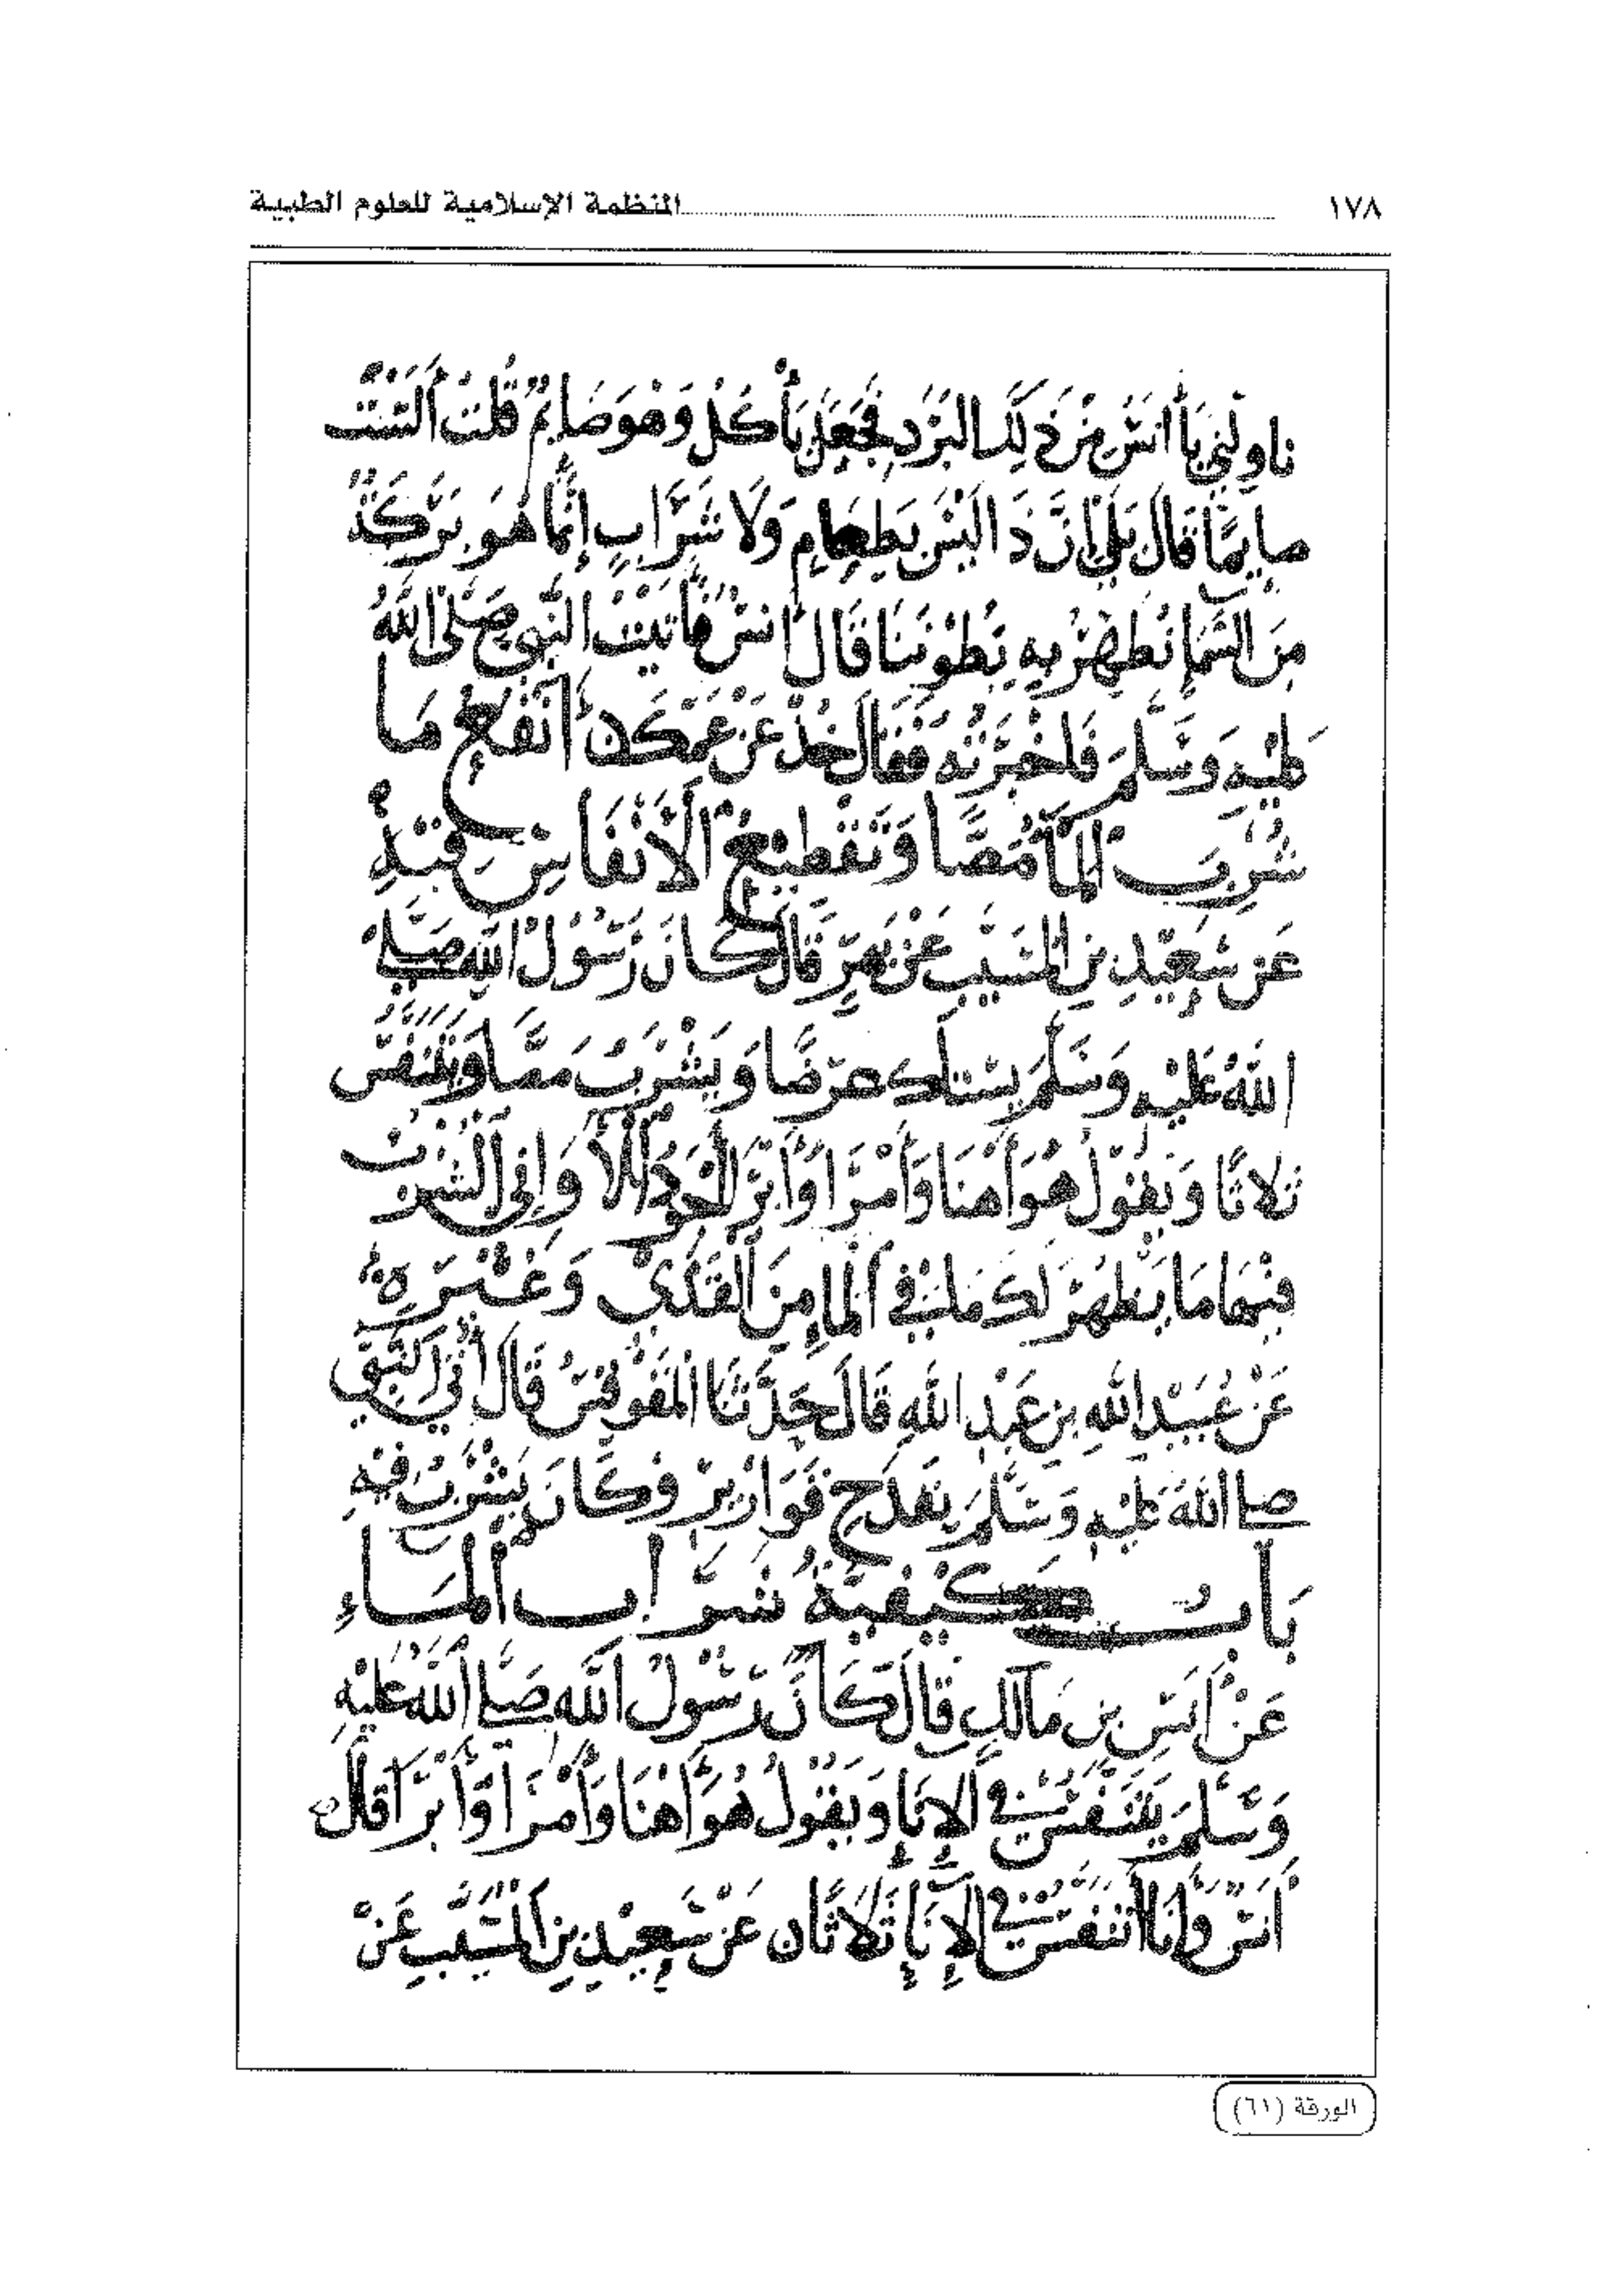 ١٧٨ المنظمة الإسلامية للعلوم الطبية
ناولني يا أنس من ذلك البرد فجعل يأكل وهو صايم قلت ألست
صايمًا قال بلى إن ذا ليس بطعام ولا شراب إنما هو بركة
من السما نطهر به بطوننا قال أنس فأتيت النبي صلى الله
عليه وسلم فأخبرته فقال خذ عن عمك ن أنفع ما
شرب الما مصا وتقطيع الأنفاس فيه
عن سعيد بن المسيب عن بهز قال كان رسول الله صلى
الله عليه وسلم يستاك عرضا ويشرب مصا ويتنفس
ثلاثا ويقول هو أهنا وأمرا وأبرا وإني الشرب
فيهما ما يظهر لك ملي في الما من القذى وغيره
عن عبيد الله بن عبد الله قال حدثنا المقوقس قال أتى النبي
صلى الله عليه وسلم بقدح قوارير وكان يشرب فيه
باب كيفية شراب الماء
عن أنس بن مالك قال كان رسول الله صلى الله عليه
وسلم يتنفس في الإنا ويقول هو أهنا وأمرا وأبرا قال
أنس وأنا أتنفس في الإنا ثلاثا ن عن سعيد بن المسيب عن
الورقة (٦١)